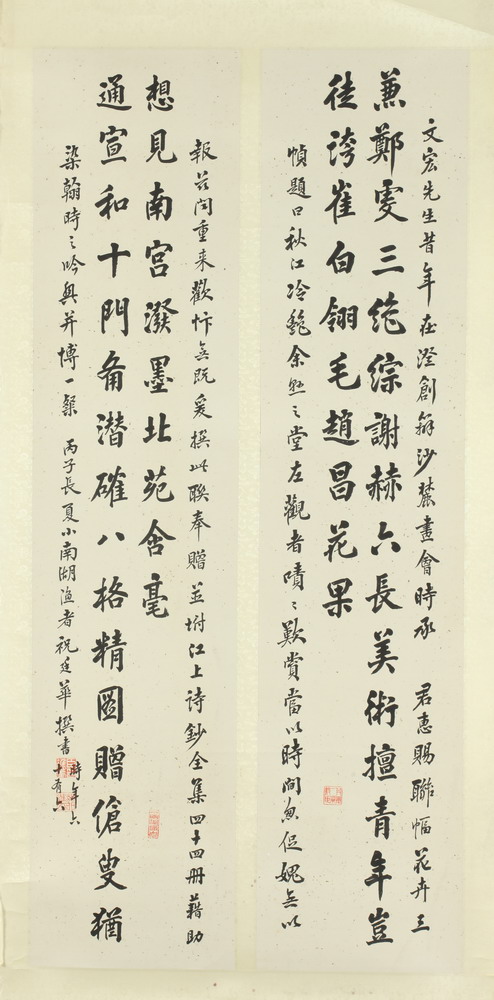 兼鄭虔三絕綜謝赫六長美術擅青年豈
徒誇崔白翎毛趙昌花果
通宣和十門备潛確八格精圖贈傖叟猶
想見南宮潑墨北苑含毫
文宏先生昔年在澄創辦沙麓畫會時承 君惠賜聯幅花卉三
幀題曰秋江冷艷余懸之堂左觀者嘖〻歎賞當以時間匆促媿無以
報茲聞重來歡忭無既爰撰此聯奉贈並坿江上詩鈔全集四十四冊藉助
染翰時之吟興并博一粲 丙子長夏小南湖漁者祝廷華撰書
時年六
十有六